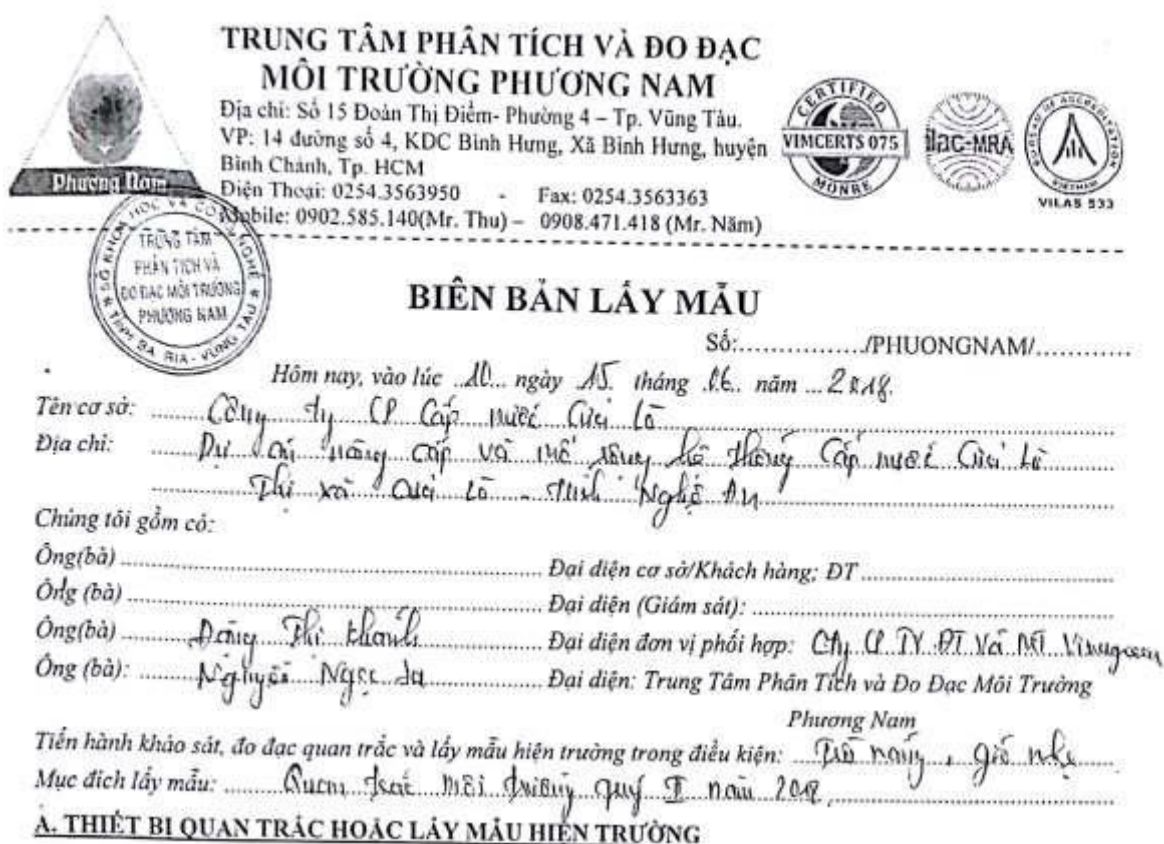 TRUNG TÂM PHÂN TÍCH VÀ ĐO ĐẠC
MÔI TRƯỜNG PHƯƠNG NAM
Địa chỉ: Số 15 Đoàn Thị Điểm- Phường 4 – Tp. Vũng Tàu.
VP: 14 đường số 4, KDC Bình Hưng, Xã Bình Hưng, huyện
Bình Chánh, Tp. HCM
Điện Thoại: 0254.3563950 - Fax: 0254.3563363
Mobile: 0902.585.140(Mr. Thu) – 0908.471.418 (Mr. Năm)
Phương Nam
CERTIFIED
VIMCERTS 075
MONRE
ilac-MRA
BUREAU OF ACCREDITATION
VIETNAM
VILAS 533
SỞ KHOA HỌC VÀ CÔNG NGHỆ
TRUNG TÂM
PHÂN TÍCH VÀ
ĐO ĐẠC MÔI TRƯỜNG
PHƯƠNG NAM
TỈNH BÀ RỊA - VŨNG TÀU
BIÊN BẢN LẤY MẪU
Số:................/PHUONGNAM/............
Hôm nay, vào lúc ..10... ngày .15. tháng .06. năm ...2018.
Tên cơ sở: Công ty CP Cấp nước Cửa Lò
Địa chỉ: Dự án nâng cấp và mở rộng hệ thống Cấp nước Cửa Lò
Thị xã Cửa Lò - Tỉnh Nghệ An
Chúng tôi gồm có:
Ông(bà) ........ Đại diện cơ sở/Khách hàng; ĐT ........
Ông (bà) ........ Đại diện (Giám sát): ........
Ông(bà) Đặng Thị Khánh Đại diện đơn vị phối hợp: Cty CP TV ĐT Và MT
Ông (bà): Nguyễn Ngọc Đại diện: Trung Tâm Phân Tích và Đo Đạc Môi Trường
Phương Nam
Tiến hành khảo sát, đo đạc quan trắc và lấy mẫu hiện trường trong điều kiện: Trời nắng, gió nhẹ
Mục đích lấy mẫu: Quan trắc môi trường quý II năm 2018
A. THIẾT BỊ QUAN TRẮC HOẶC LẤY MẪU HIỆN TRƯỜNG